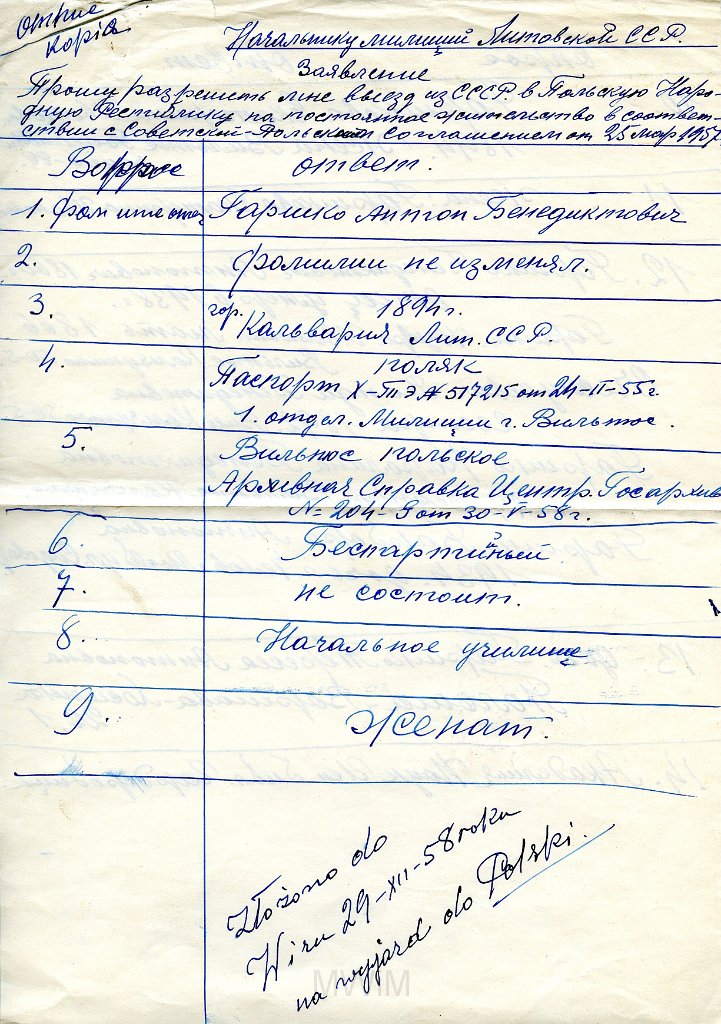 копіа
Начальнику милиций Литовской ССР.
Заявление
Прошу разрешить мне выезд из СССР. в Польскую Наро-
дную Республику на постоянное жительство в соответ-
ствии с Советской-Польским соглашением от 25 мар 1957
Вопрос ответ.
1. Фам имя отец Гаришко Антон Бенедиктович
2. фамилии не изменял.
3. 1894 г.
гор. Кальвария Лит. ССР.
4. поляк
Паспорт X-ТЭ № 517215 от 24-II-55 г.
1. отдел. Милиции г. Вильнюс.
5. Вильнюс польское
Архивная Справка Центр. Госархив
№ 204-9 от 30-V-58 г.
6. Беспартийный
7. не состоит.
8. Начальное училище
9. Женат.
Złożono do
29-XII-58 roku
na wyjazd do Polski.
MWIM